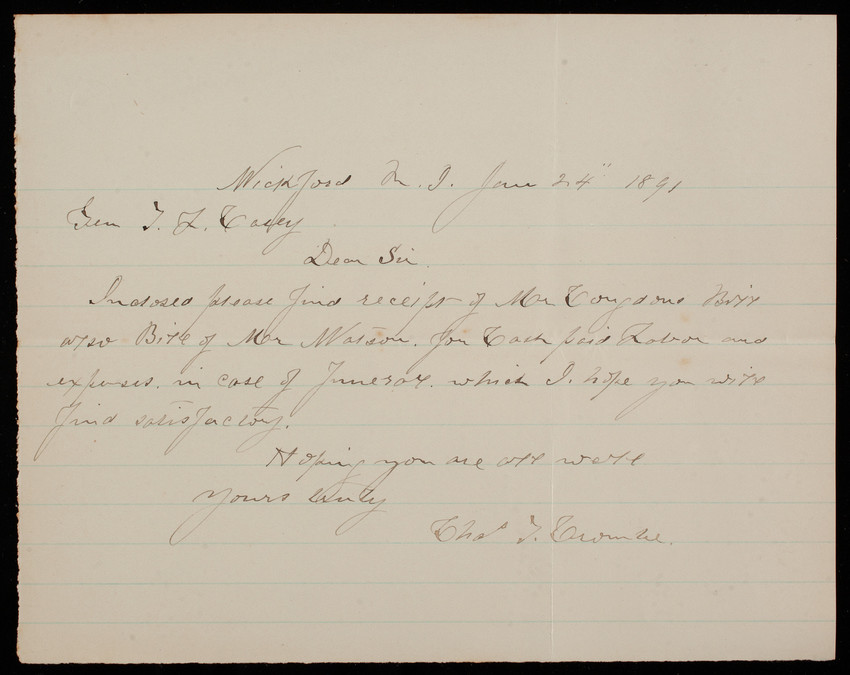 Wickford R. I. Jan 24" 1891
Gen T. L. Casey
Dear Sir.
Inclosed please find receipt of Mr Congdons Bill
also Bill of Mr Watson. for Cash paid Labor and
expenses. in case of Funeral. which I. hope you will
find satisfactory.
Hoping you are all well
Yours truly
Chas T.